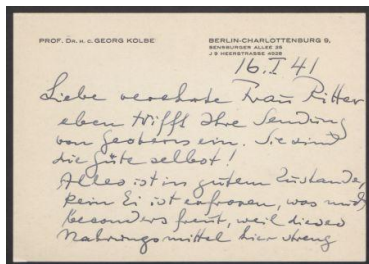 PROF. DR. H. C. GEORG KOLBE
BERLIN-CHARLOTTENBURG 9,
SENSBURGER ALLEE 26
J 9 HEERSTRASSE 4028
16. I. 41
Liebe verehrte Frau Ritter
eben trifft Ihre Sendung
von gestern ein. Sie sind
die Güte selbst!
Alles ist in gutem Zustande,
kein Ei ist erfroren, was mich
besonders freut, weil dieses
Nahrungsmittel hier streng